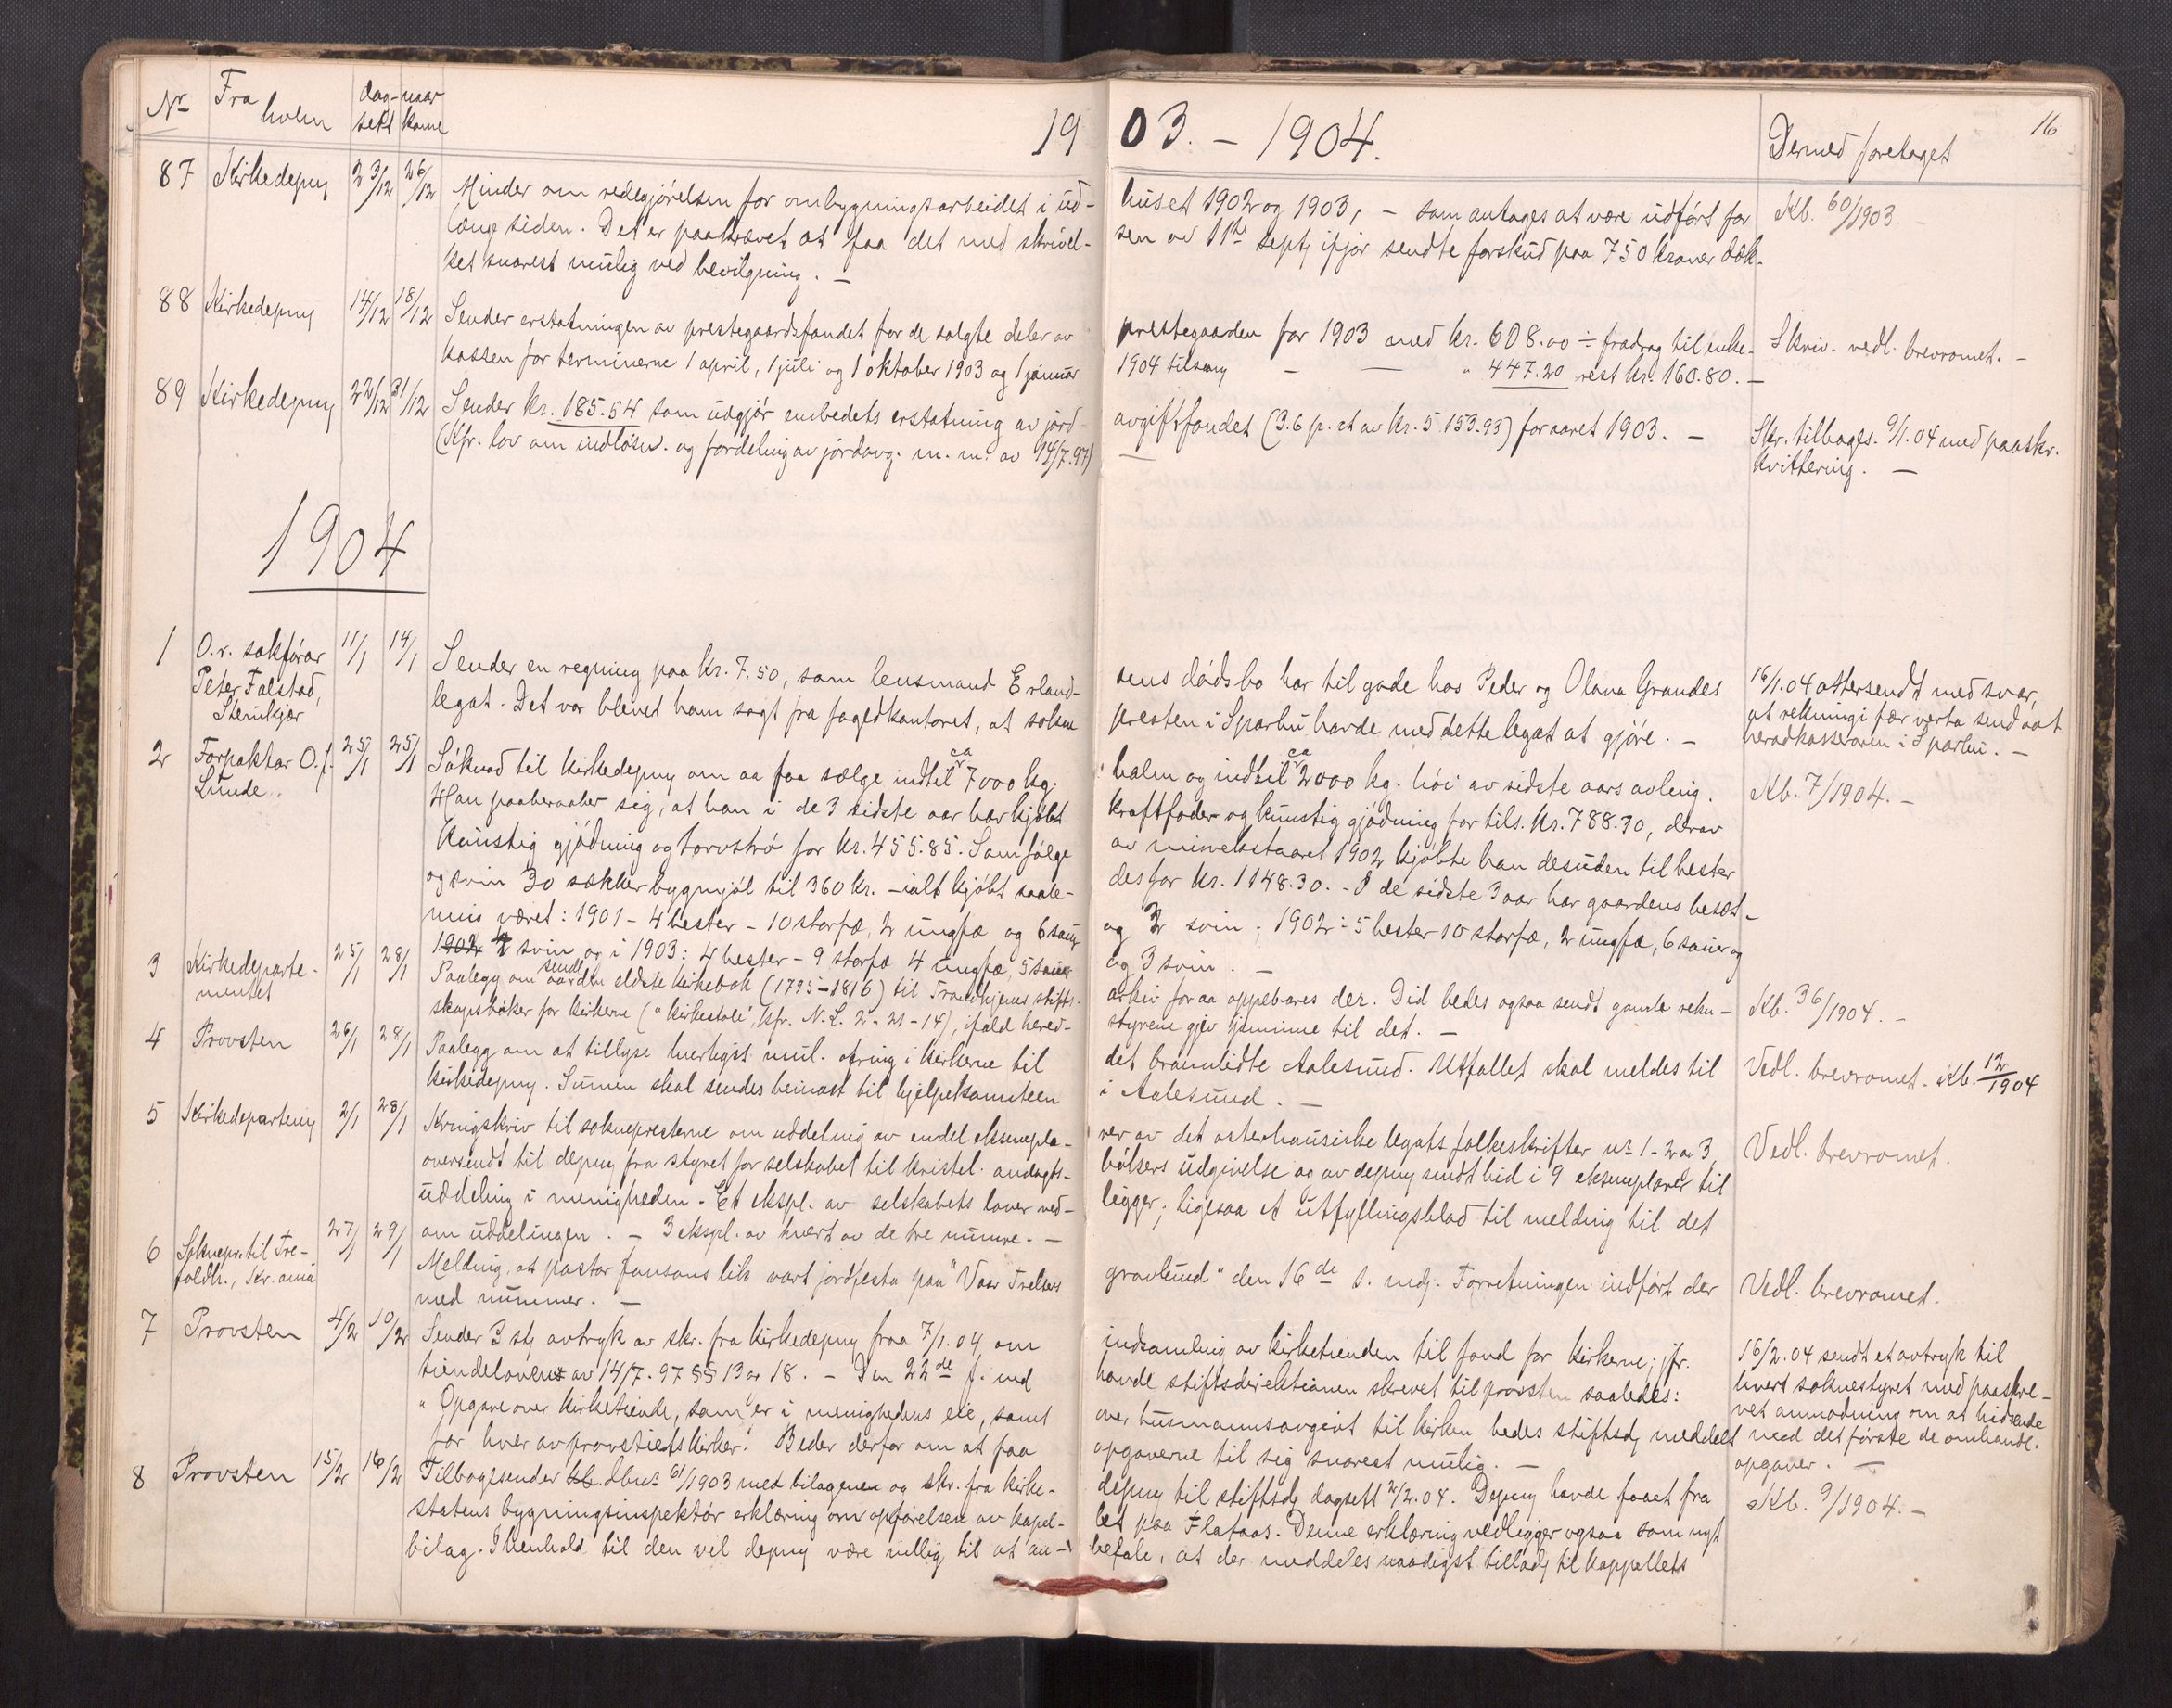 Nr Fra hvem dag-sett naar kome 1903. - 1904. Dermed foretaget 16
87 Kirkedepny 23/12 26/12 Minder om redegjörelsen for ombygningsarbeidet i ud- huset 1902 og 1903, - som antages at være udfört for Kb. 60/1903.
længe siden. Det er paakrævet at faa det med skrivel- sen av 11te septb ifjor sendte forskud paa 750 kroner dæk-
ket snarest mulig ved bevilgning. -
88 Kirkedepny 14/12 18/12 Sender erstatningen av prestegaardsfondet for de solgte deler av prestegaarden for 1903 med kr. 608.00 ÷ fradrag til enke- Skriv. vedl. brevromet. -
kassen for terminerne 1 april, 1 juli og 1 oktober 1903 og 1 januar 1904 tilsmn - - " 447.20 rest kr. 160.80. -
89 Kirkedepny 22/12 31/12 Sender kr. 185.54 som udgjör embedets erstatning av jord- avgiftsfondet (3.6 p. ct av kr. 5 153.93) for aaret 1903. - Skr. tilbages. 9/1.04 med paaskr.
(Kfr. lov om indlösn. og fordeling av jordavg. m. m. av 14/7.97) - kvittering. -
1904
1 O.r. sakförar 11/1 14/1 Sender en regning paa kr. 7.50, som lensmand Erland- sens dödsbo har til gode hos Peder og Olava Grandes 16/1.04 attersendt med svar,
Peter Falstad, legat. Det var blevet ham sagt fra fogedkontoret, at sokne presten i Sparbu havde med dette legat at gjöre. - at rekningi fær verta send aat
Stenkjær heradkasseraren i Sparbu. -
2 Forpaktar O. J. 25/1 25/1 Söknad til kirkedepny om aa faa sælge indtil ca 7000 kg. halm og indtil ca 2000 kg. höi av sidste aars avling. Kb. 7/1904. -
Lunde. Han paaberaaber sig, at han i de 3 sidste aar har kjöbt kraftfoder og kunstig gjödning for tils. kr. 788.30, derav
kunstig gjödning og torvströ for kr. 455.85. Som fölge av uaaret 1902 kjöbte han desuden til hester
og svin 30 sækker bygmjöl til 360 kr. - ialt kjöbt saale- des for kr. 1148.30. - I de sidste 3 aar har gaardens besæt-
ning været: 1901 - 4 hester - 10 storfæ, 2 ungfæ og 6 sauer og 2 svin; 1902: 5 hester 10 storfæ, 2 ungfæ, 6 sauer og
1902 2 svin og i 1903: 4 hester - 9 storfæ 4 ungfæ, 5 sauer og 3 svin. -
3 Kirkedeparte- 25/1 28/1 Paalegg om aa sende den eldste kirkebok (1795-1816) til Trondhjems stifts- arkiv for aa oppebares der. Did bedes ogsaa sendt gamle rekn- Kb. 36/1904. -
mentet skapsböker for kirkerne ("kirkestole", kfr. N. L. 2-21-14), ifald hered- styrene gjev samme til det. -
4 Provsten 26/1 28/1 Paalegg om at tillyse snarligst mul. ofring i kirkerne til det brandlidte Aalesund. Utfallet skal meldes til Vedl. brevromet. Kb. 12/1904
kirkedepny. Sumen skal sendes beinast til hjelpekomiteen i Aalesund. -
5 Kirkedepartemy 2/1 28/1 Kringskriv til sokneprestene om uddeling av endel eksempla- rer av det osterhausiske legats folkeskrifter nr 1-2 og 3, Vedl. brevromet.
oversendt til depny fra styret for selskabet til kristel. andagts- bökers udgivelse og av depny sendt hid i 9 eksemplarer til
uddeling i menigheden. Et ekspl. av selskabets lover ved- ligger; ligesaa et utfyllingsblad til melding til det
om uddelingen. - 3 ekspl. av hvert av de tre numre. -
6 Soknepr. til Tre- 27/1 29/1 Melding, at pastor Jansons lik vart jordfesta paa "Vaar Frelsers gravlund" den 16de s. md. Forretningen indfört der Vedl. brevromet.
foldh., Kr. ania med nummer. -
7 Provsten 4/2 10/2 Sender 3 stk avtryk av skr. fra kirkedepny fraa 7/1.04 om indsamling av kirketienden til fond for kirkerne; jfr. 16/2.04 sendt et avtryk til
tiendeloven av 14/7.97 §§ 13 og 18. - Den 22de f. md havde stiftsdirektionen skrevet til provsten saaledes: hvert soknestyret med paaskre-
"Opgave over kirketiende, som er i menighedens eie, samt over husmannsavgivt til kirken bedes stiftsd. meddelt vet anmodning om at hidsende
for hver av provstiets kirker." Beder derfor om at faa opgaverne til sig snarest mulig. - med det förste de omhandl.
opgaver. -
8 Provsten 15/2 16/2 Tilbagesender dbnr 61/1903 med bilagene og skr. fra kirke- depny til stiftsd. dagsett 2/2.04. Depny havde faaet fra Kb. 9/1904. -
statens bygningsinspektör erklæring om opförelsen av kapel- let paa Flataas. Denne erklæring vedligger ogsaa som nyt
bilag. I henhold til den vil depny være villig til at an- befale, at der meddeles naadigst tillad. til kappellets